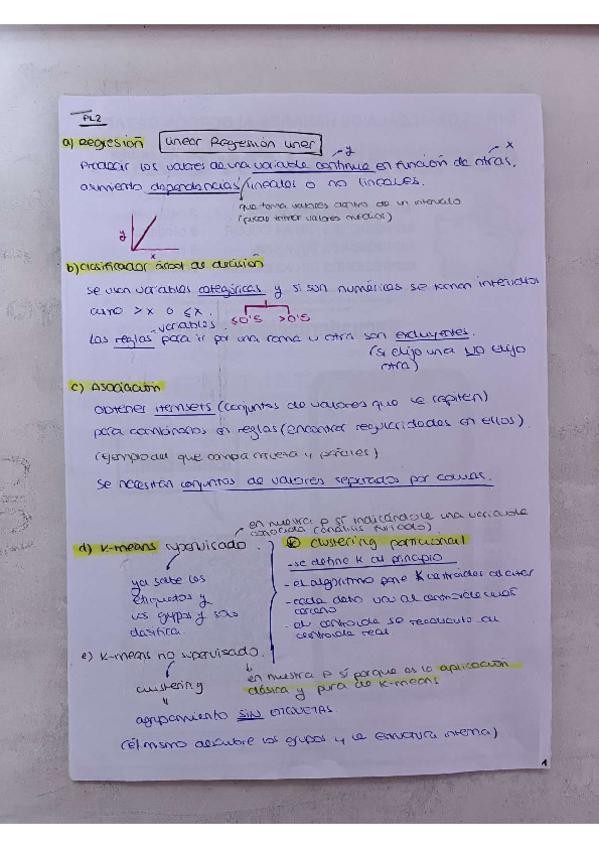 PL2
a) Regresión Linear Regresión Liner
Predecir los valores de una variable continua en función de otras,
y
x
asumiento dependencias lineales o no lineales.
que toma valores dentro de un intervalo
(puede tomar valores medios)
y
x
b) Clasificador árbol de decisión
Se usan variables categóricas y si son numéricas se toman intervalos
como >x o ≤x.
≤0'5 >0'5
variables
Las reglas para ir por una rama u otra son excluyentes.
(si elijo una NO elijo
otra)
c) Asociación
Obtener itemsets (conjuntos de valores que se repiten)
para combinarlos en reglas (encontrar regularidades en ellos)
(ejemplo del que compra cerveza y pañales)
Se necesitan conjuntos de valores separados por comas.
en nuestra P sí indicándole una variable
conocida (análisis forzado)
d) K-means supervisado.
ya sabe las
etiquetas y
los grupos y solo
clasifica.
clustering particional
- se define K al principio
- el algoritmo pone K centroides al azar
- cada dato va al centroide más
cercano
- el centroide se recalcula al
centroide real
e) K-means no supervisado.
en nuestra P sí porque es la aplicación
clásica y pura de K-means
clustering
agrupamiento SIN ETIQUETAS.
(Él mismo descubre los grupos y la estructura interna)
1